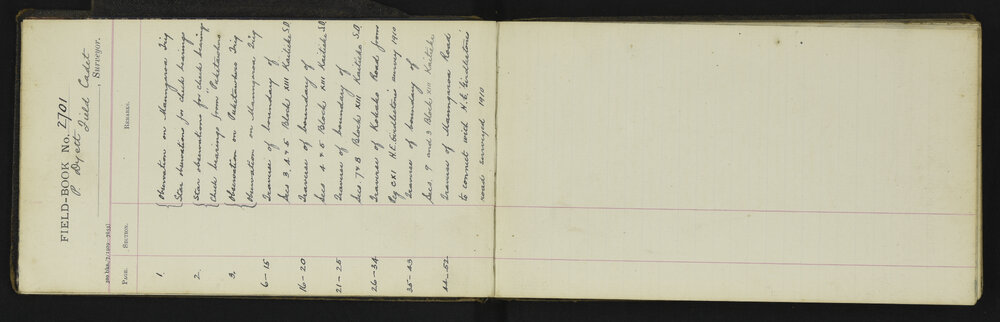 FIELD-BOOK No. 2701
P. Dyett Field Cadet
, Surveyor.
PAGE. SECTION. REMARKS.
1. Observation on Maungaroa Trig
Star observations for check bearings
2. Star observations for check bearing
Check bearings from Paketawhero
3. Observation on Paketawhero Trig
Observation on Maungaroa Trig
6-15 Traverse of boundary of
Secs 3, 4 & 5 Block XIII Kaitieke S.D.
16-20 Traverse of boundary of
Secs 4 & 5 Block XIII Kaitieke S.D.
21-25 Traverse of boundary of
Secs 7 & 8 Block XIII Kaitieke S.D.
26-34 Traverse of Kokako Road from
Peg CXI H.E. Girdlestone's survey 1910
35-43 Traverse of boundary of
Secs. 9 and 3 Block XIII Kaitieke
44-52 Traverse of Maungaroa Road
to connect with H.E. Girdlestone's
road surveyed 1910